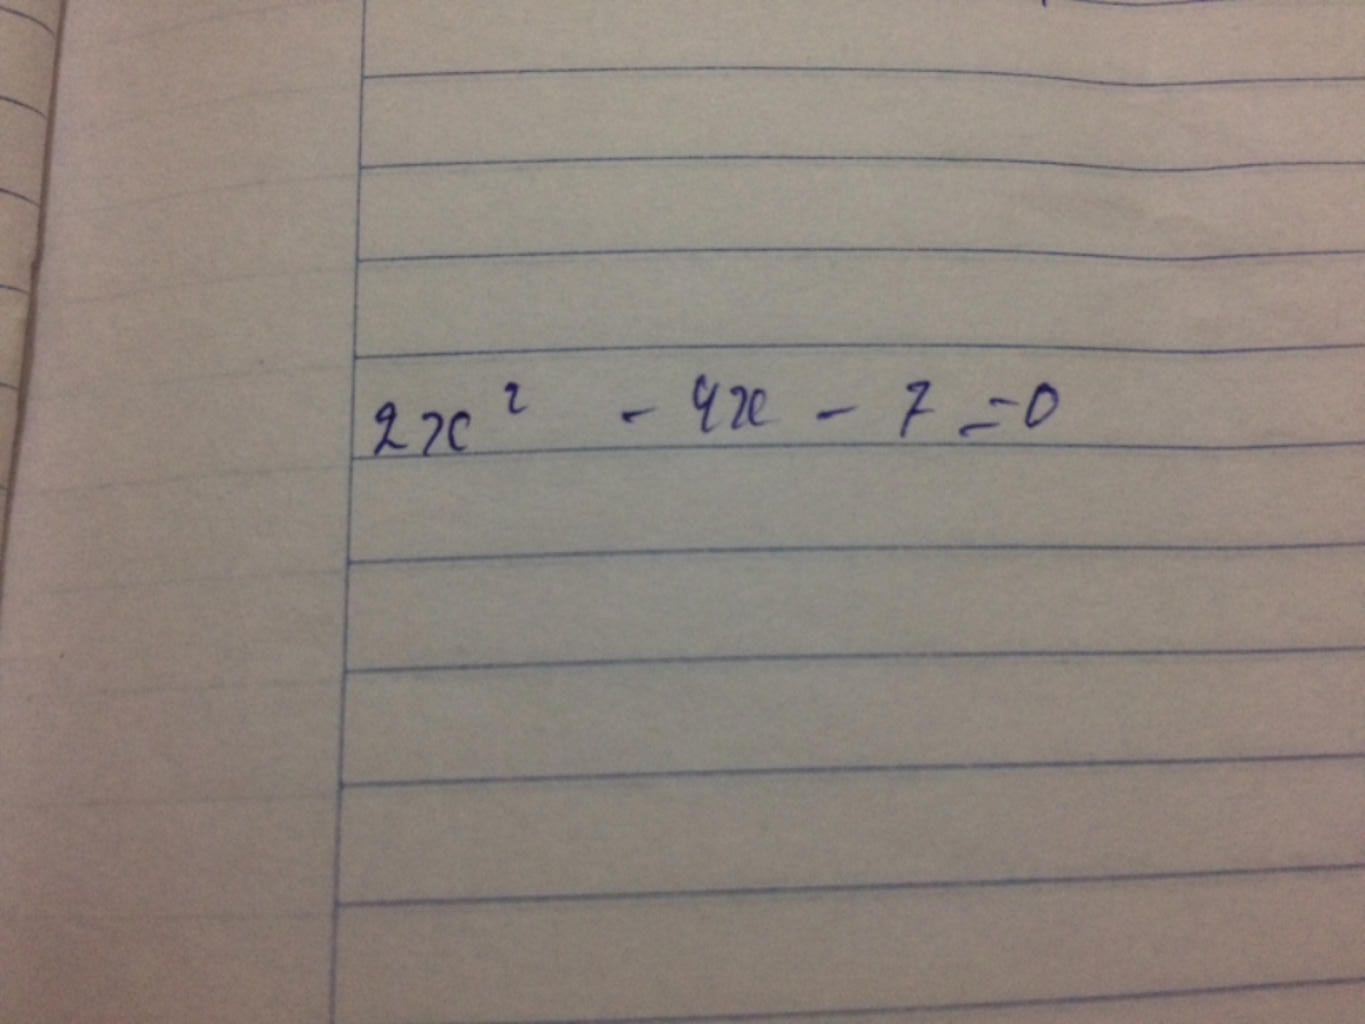 2x² - 4x - 7 = 0